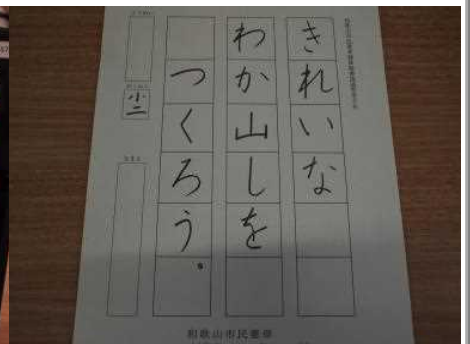 きれいな
わか山しを
つくろう。
小二
和歌山市民憲章